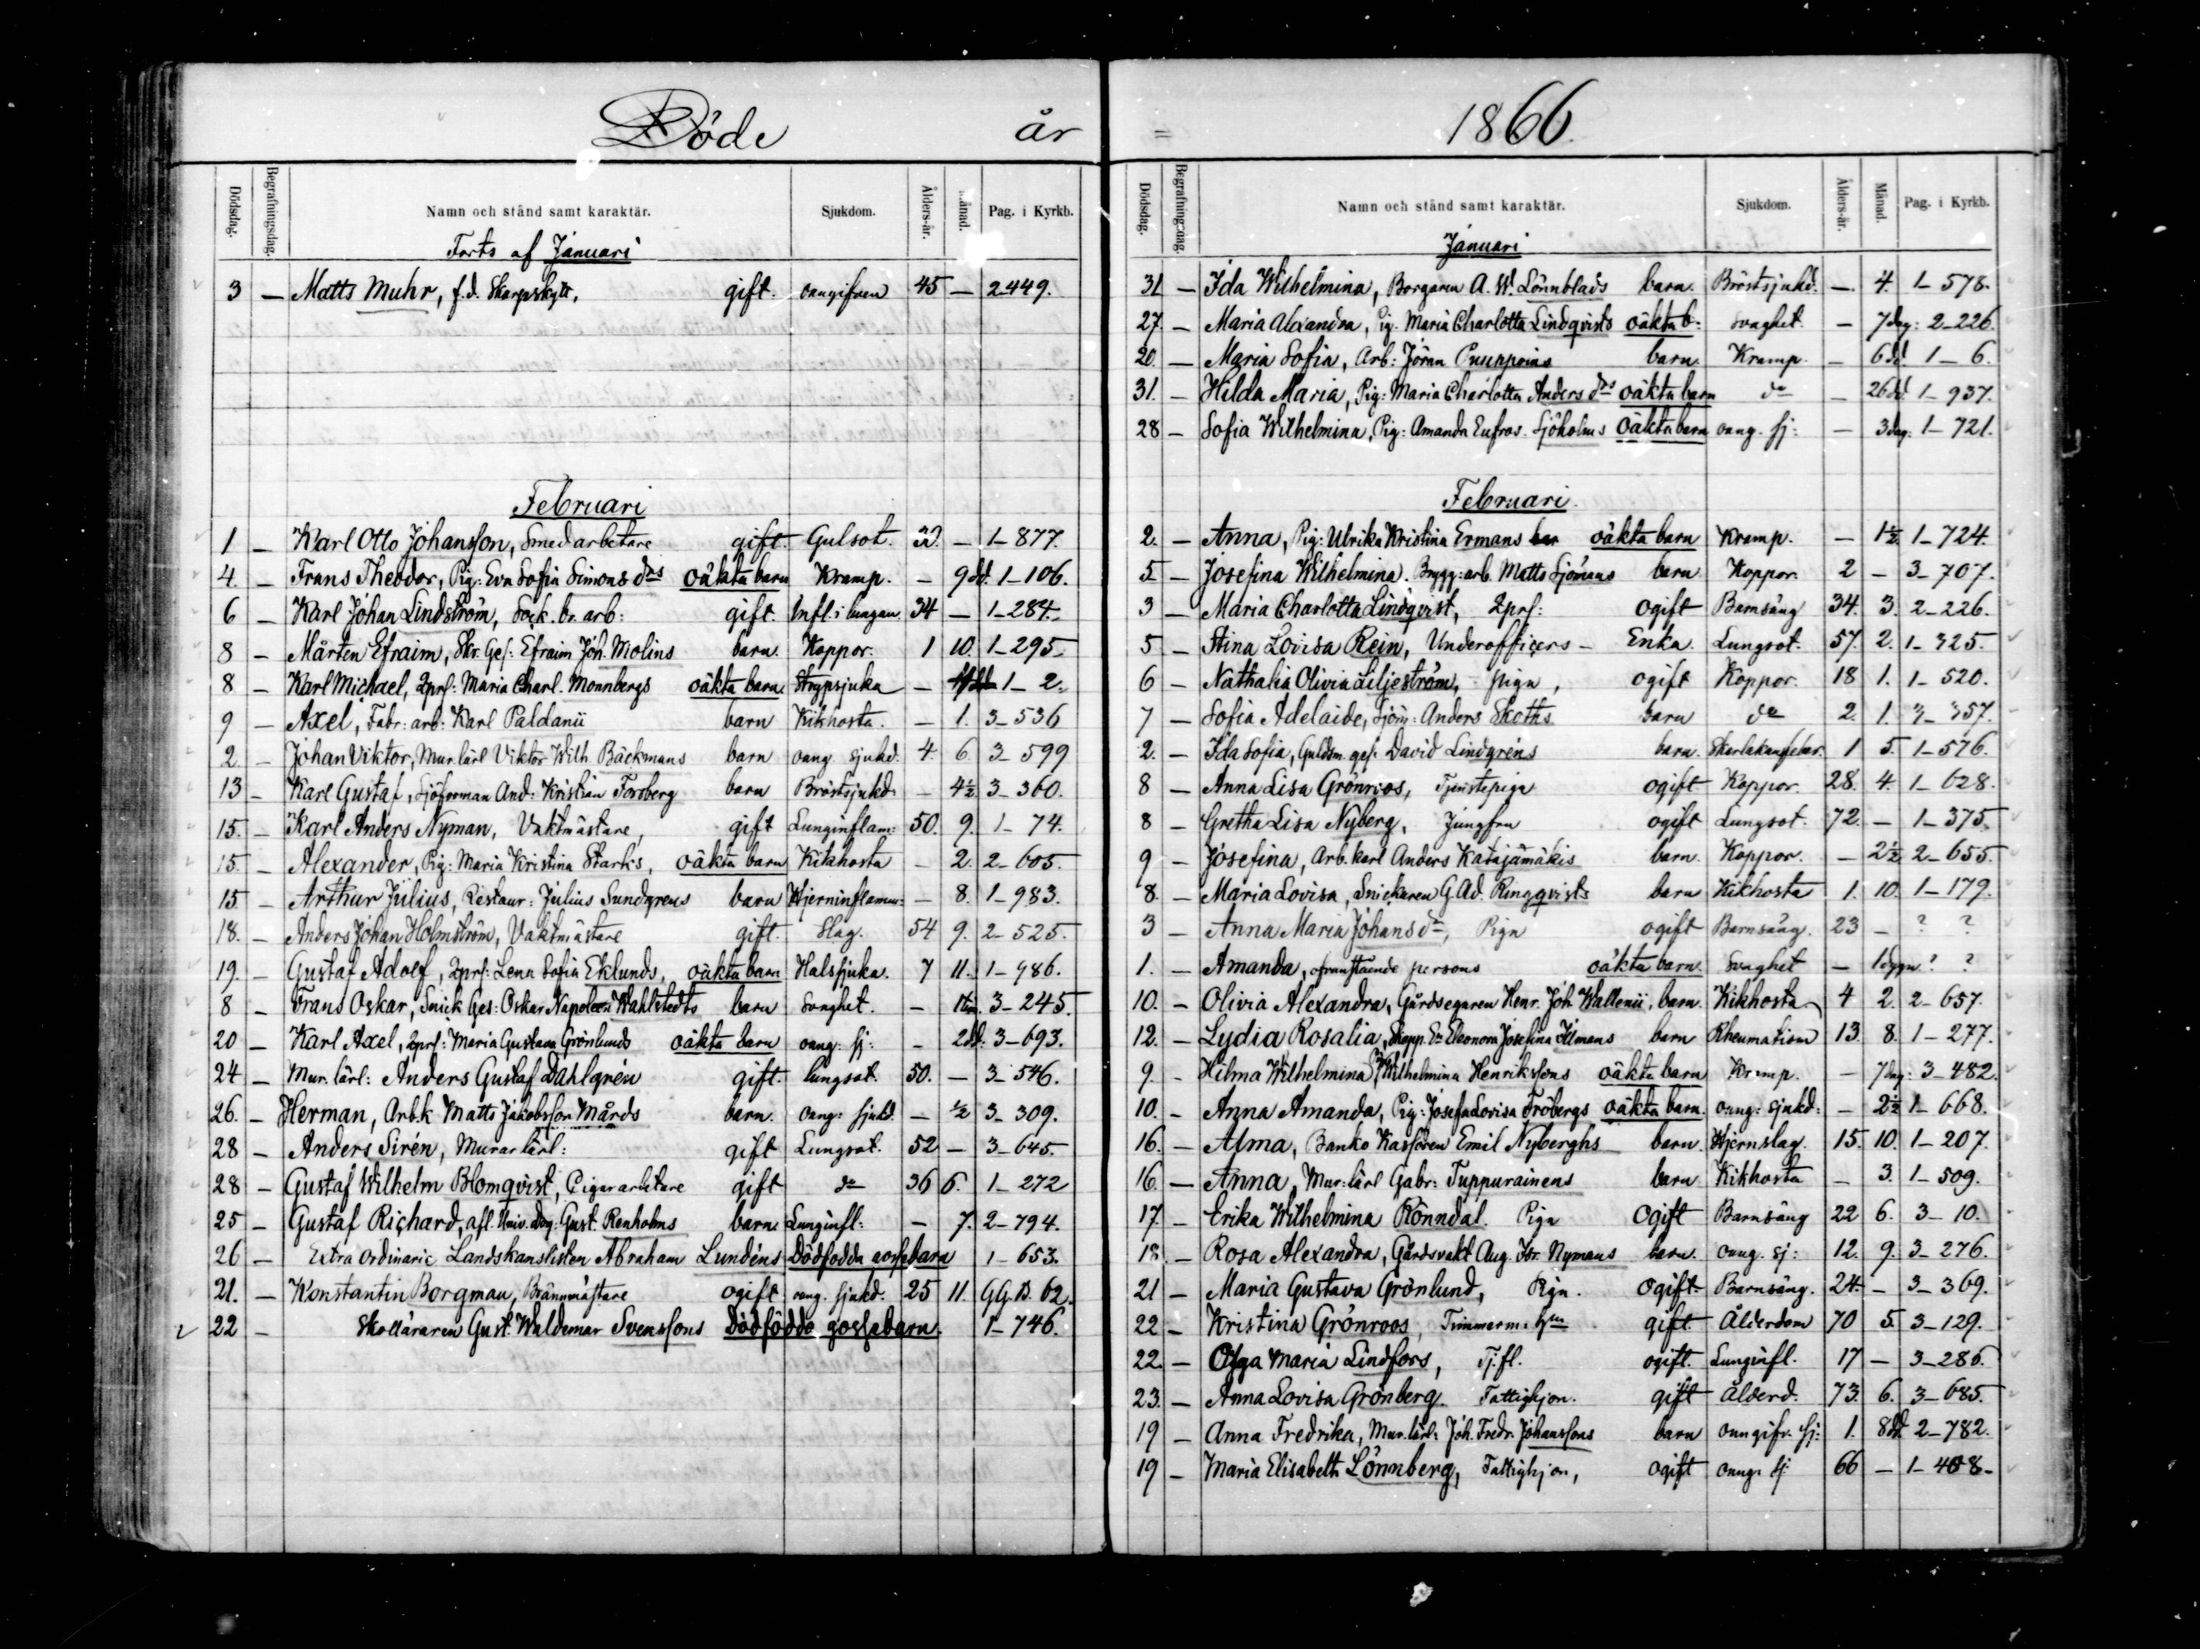 Döde år
Dödsdag. Begrafningsdag. Namn och stånd samt karaktär. Sjukdom. Ålders-år. Månad. Pag. i Kyrkb.
Forts af Januari
3 — Matts Muhr, f.d. Skarpskytt, gift. oangifven 45 — 2-449.
Februari
1 — Karl Otto Johansson, Smedarbetare gift. Gulsot. 32. — 1-877.
4. — Frans Theodor, Pig: Eva Sofia Simonsdrs oäkta barn Kramp. — 9 dd. 1-106.
6 — Karl Johan Lindström, Sock. br. arb: gift. Infl: i lungan. 34 — 1-284.
8 — Mårten Efraim, Skr. Ges: Efraim Joh. Molins barn. Koppor. 1 10. 1-295.
8 — Karl Michael, 2prs: Maria Charl. Monnbergs oäkta barn. Strypsjuka — 1-2.
9 — Axel, Fabr: arb: Karl Paldanii barn Kikhosta. — 1. 3-536
2. — Johan Viktor, Mur. lärl Viktor Wilh. Bäckmans barn oang. sjukd. 4. 6 3-599
13 — Karl Gustaf, Sjöforman And: Kristian Forsberg barn Bröstsjukd. — 4½ 3-360.
15. — Karl Anders Nyman, Vaktmästare, gift Lunginflam: 50. 9. 1-74.
15. — Alexander, Pig: Maria Kristina Starks, oäkta barn Kikhosta — 2. 2-605.
15 — Arthur Julius, Restaur: Julius Sundgrens barn Hjerninflamm: — 8. 1-983.
18. — Anders Johan Holmström, Vaktmästare gift. Slag. 54 9. 2-525.
19. — Gustaf Adolf, 2prs: Lena Sofia Eklunds, oäkta barn Halssjuka. 7 11. 1-986.
8 — Frans Oskar, Snick Ges: Oskar Napoleon Wahlstedts barn Svaghet. — 1 tim. 3-245.
20 — Karl Axel, 2prs: Maria Gustava Grönlunds oäkta barn oang: sj: — 2 dd. 3-693.
24 — Mur. lärl: Anders Gustaf Dahlgrén gift. lungsot. 50. — 3-546.
26. — Herman, Arb.k Matts Jakobsson Mårds barn. oang: sjukd — ½ 3-309.
28 — Anders Sirén, Murarlärl: gift Lungsot. 52 — 3-645.
28 — Gustaf Wilhelm Blomqvist, Cigararbetare gift do 36 6. 1-272
25 — Gustaf Richard, afl. Univ. Gust. Renholms barn Lunginfl: — 7. 2-794.
26 — Extra ordinarie Landskanslisten Abraham Lundéns Dödfödda gossebarn 1-653.
21. — Konstantin Borgman, Brännmästare ogift oang. sjukd. 25 11. GG.D. 62.
22 — Skolläraren Gust. Waldemar Svenssons Dödfödda gossebarn. 1-746.
1866.
Dödsdag. Begrafningsdag. Namn och stånd samt karaktär. Sjukdom. Ålders-år. Månad. Pag. i Kyrkb.
Januari
31 — Ida Wilhelmina, Borgaren A. W. Lönnblads barn. Bröstsjukd. — 4. 1-578.
27. — Maria Alexandra, Pig. Maria Charlotta Lindqvists oäkta b: Svaghet. — 7 dag: 2-226.
20. — Maria Sofia, Arb: Jöran Puupponens barn. Kramp. — 6 dd. 1-6.
31. — Hilda Maria, Pig: Maria Charlotta Anders drs oäkta barn do — 26 dd. 1-937.
28 — Sofia Wilhelmina, Pig: Amanda Eufros. Sjöholms oäkta barn oang. sj: — 3 dag: 1-721.
Februari.
2. — Anna, Pig: Ulrika Kristina Ermans bar oäkta barn Kramp. — 1½ 1-724.
5 — Josefina Wilhelmina. Brygg: arb. Matts Sjömans barn Koppor. 2 — 3-707.
3 — Maria Charlotta Lindqvist, 2prs: ogift Barnsäng 34. 3. 2-226.
5 — Stina Lovisa Rein, Underofficers- Enka. Lungsot. 57. 2. 1-325.
6 — Nathalia Olivia Liljeström, piga, ogift Koppor. 18 1. 1-520.
7 — Sofia Adelaide, Sjöm: Anders Skoths barn do 2. 1. 3-357.
2. — Ida Sofia, Guldsm. ges: David Lindgréns barn. Skarlakansfeber. 1 5. 1-576.
8 — Anna Lisa Grönroos, Tjenstepiga ogift Koppor 28. 4. 1-628.
8 — Gretha Lisa Nyberg, Jungfru ogift Lungsot. 72. — 1-375.
9 — Josefina, Arb. karl Anders Katajamäkis barn. Koppor. — 2½ 2-655.
8. — Maria Lovisa, Snickaren G. Ad. Ringqvists barn Kikhosta 1. 10. 1-179.
3 — Anna Maria Johansdr, Piga ogift Barnsäng. 23 — ? ?
1. — Amanda, ofvanstående persons oäkta barn. Svaghet — 1 dygn ? ?
10. — Olivia Alexandra, Gårdsegaren Henr. Joh. Wallenii, barn. Kikhosta 4 2. 2-657.
12. — Lydia Rosalia, Skepp. En Eleonora Josefina Ilmans barn Rheumatism 13. 8. 1-277.
9. — Hilma Wilhelmina, Wilhelmina Henrikssons oäkta barn Kramp. — 7 dag: 3-482.
10. — Anna Amanda, Pig: Josefa Lovisa Fröbergs oäkta barn. oang: sjukd: — 2½ 1-668.
16. — Alma, Banko Kassören Emil Nyberghs barn. Hjernslag. 15. 10. 1-207.
16. — Anna, Mur: lärl Gabr: Tuppurainens barn Kikhosta — 3. 1-509.
17. — Erika Wilhelmina Rönndal. Piga ogift Barnsäng 22 6. 3-10.
18. — Rosa Alexandra, Gårdsvakt Aug. Isr. Nymans barn. oang. sj: 12. 9. 3-276.
21 — Maria Gustava Grönlund, Piga. ogift Barnsäng. 24. — 3-369.
22 — Kristina Grönroos, Timmerm: hu gift. Ålderdom 70 5. 3-129.
22. — Olga Maria Lindfors, Tj.fl. ogift. Lunginfl. 17 — 3-286.
23. — Anna Lovisa Grönberg. Fattighjon. gift Ålderd. 73. 6. 3-685.
19 — Anna Fredrika, Mur. lärl: Joh. Fredr. Johanssons barn oangifv. sj: 1. 8 dd. 2-782.
19 — Maria Elisabeth Lönnberg, Fattighjon, ogift oang: sj: 66 — 1-408.